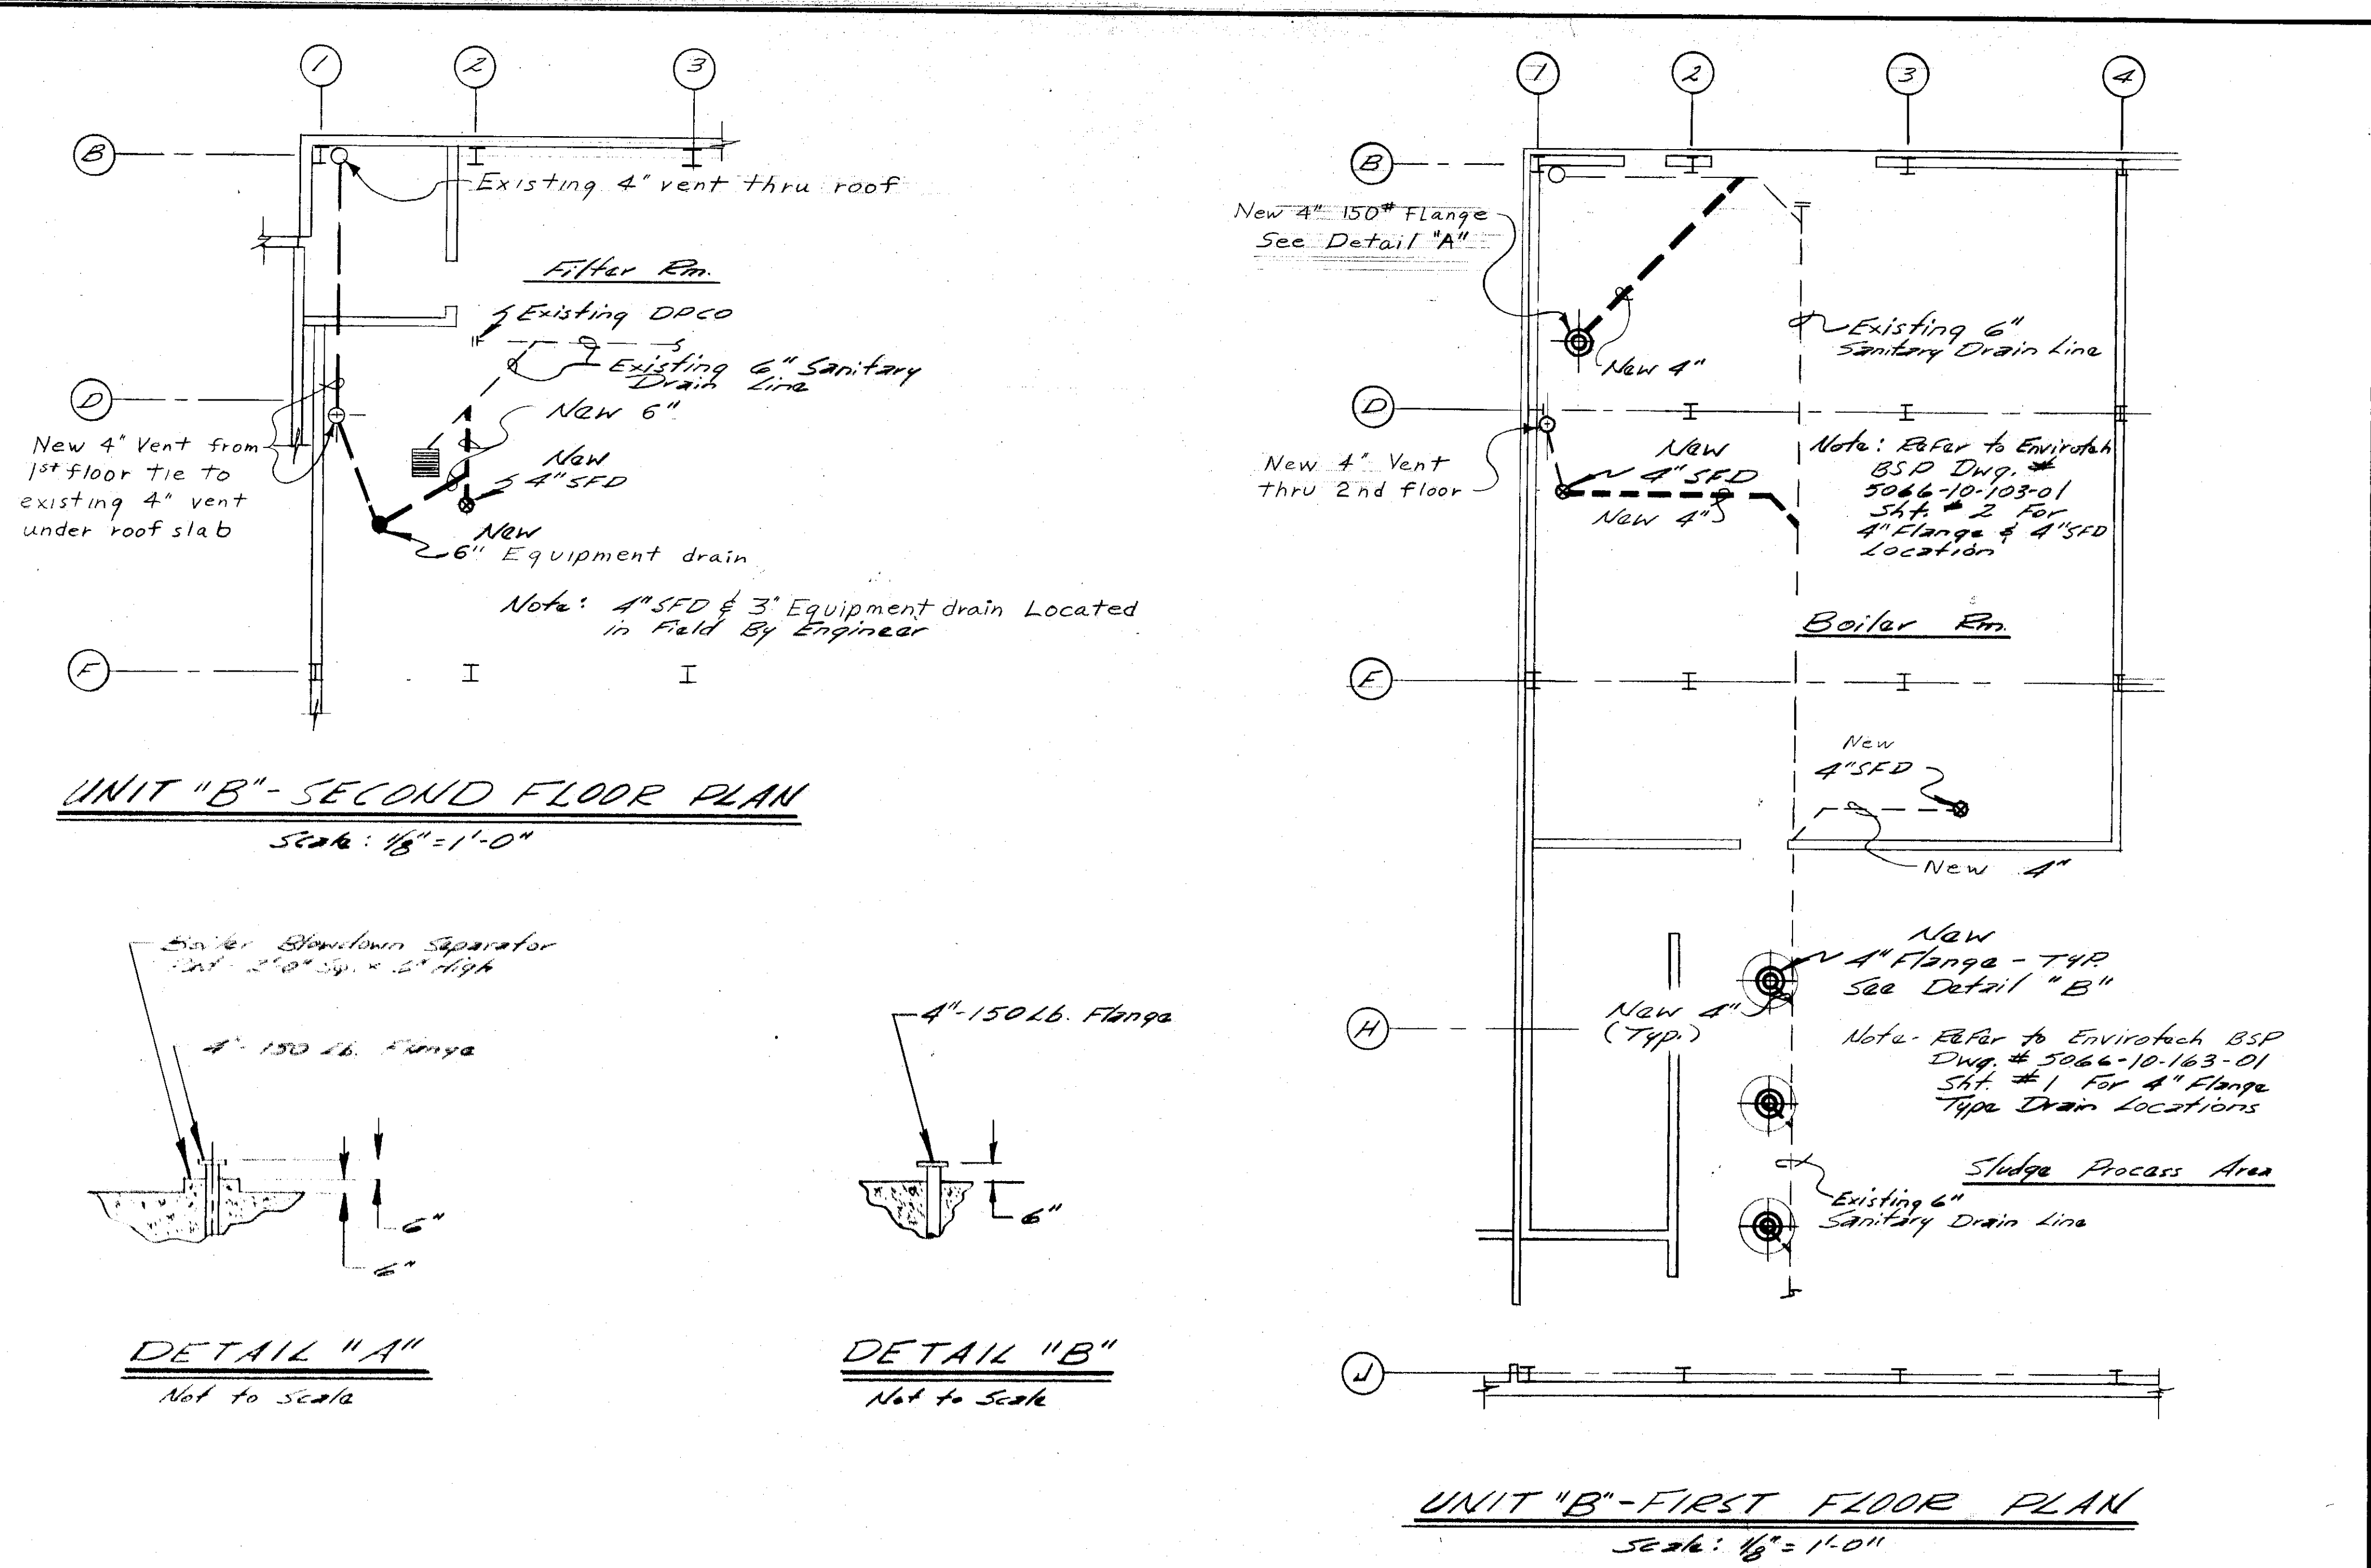 1
2
3
B
Existing 4" vent thru roof
Filter Rm.
Existing DPCO
Existing 6" Sanitary
Drain Line
D
New 6"
New 4" Vent from
1st floor tie to
existing 4" vent
under roof slab
New
4" SFD
New
6" Equipment drain
Note: 4" SFD & 3" Equipment drain Located
in Field By Engineer
F
UNIT "B"-SECOND FLOOR PLAN
Scale: 1/8" = 1'-0"
Boiler Blowdown Separator
2'-0" Sq. x 6" High
4"-150 Lb. Flange
6"
6"
DETAIL "A"
Not to Scale
4"-150 Lb. Flange
6"
DETAIL "B"
Not to Scale
1
2
3
4
B
New 4" 150# Flange
See Detail "A"
Existing 6"
Sanitary Drain Line
New 4"
D
New 4" Vent
thru 2nd floor
New
4" SFD
New 4"
Note: Refer to Envirotech
BSP Dwg. #
5066-10-103-01
Sht. # 2 For
4" Flange & 4" SFD
Location
Boiler Rm.
F
New
4" SFD
New 4"
New
4" Flange - TYP.
See Detail "B"
New 4"
(Typ.)
H
Note- Refer to Envirotech BSP
Dwg. # 5066-10-163-01
Sht. #1 For 4" Flange
Type Drain Locations
Sludge Process Area
Existing 6"
Sanitary Drain Line
J
UNIT "B"-FIRST FLOOR PLAN
Scale: 1/8" = 1'-0"